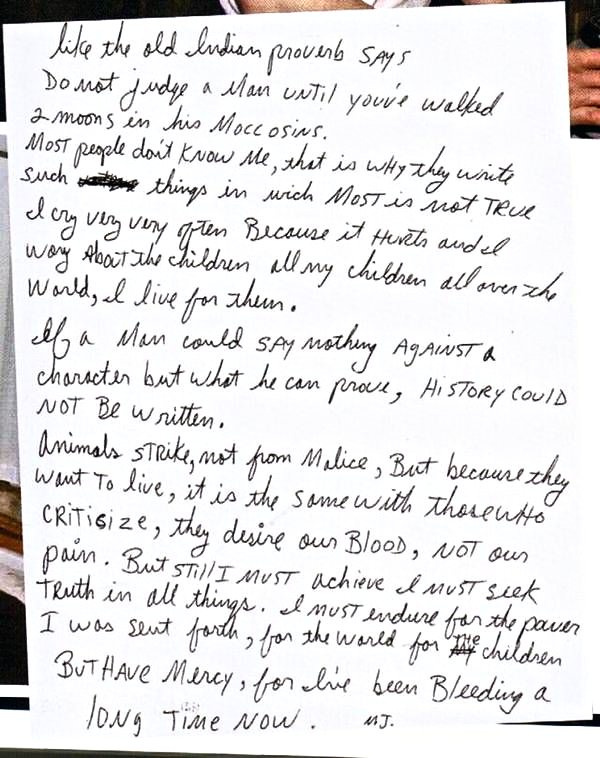 like the old Indian proverb SAYS
Do not judge a Man UNTIL you've walked
2 moons in his Moccosins.
MOST people don't KNOW Me, that is WHY they write
such things in wich MOST is not TRUE
I cry very very often Because it HURTS and I
wory ABOUT the children all my children all over the
World, I live for them.
If a Man could SAY nothing AGAINST a
character but what he can prove, HISTORY COULD
NOT BE written.
Animals STRIKE, not from Malice, But because they
want To live, it is the same with those WHO
CRITISIZE, they desire our BLOOD, NOT our
pain. But STILL I MUST achieve I MUST seek
TRUTH in all things. I MUST endure for the power
I was sent forth, for the world for THE children
BUT HAVE Mercy, for I've been Bleeding a
long TIME NOW. MJ.